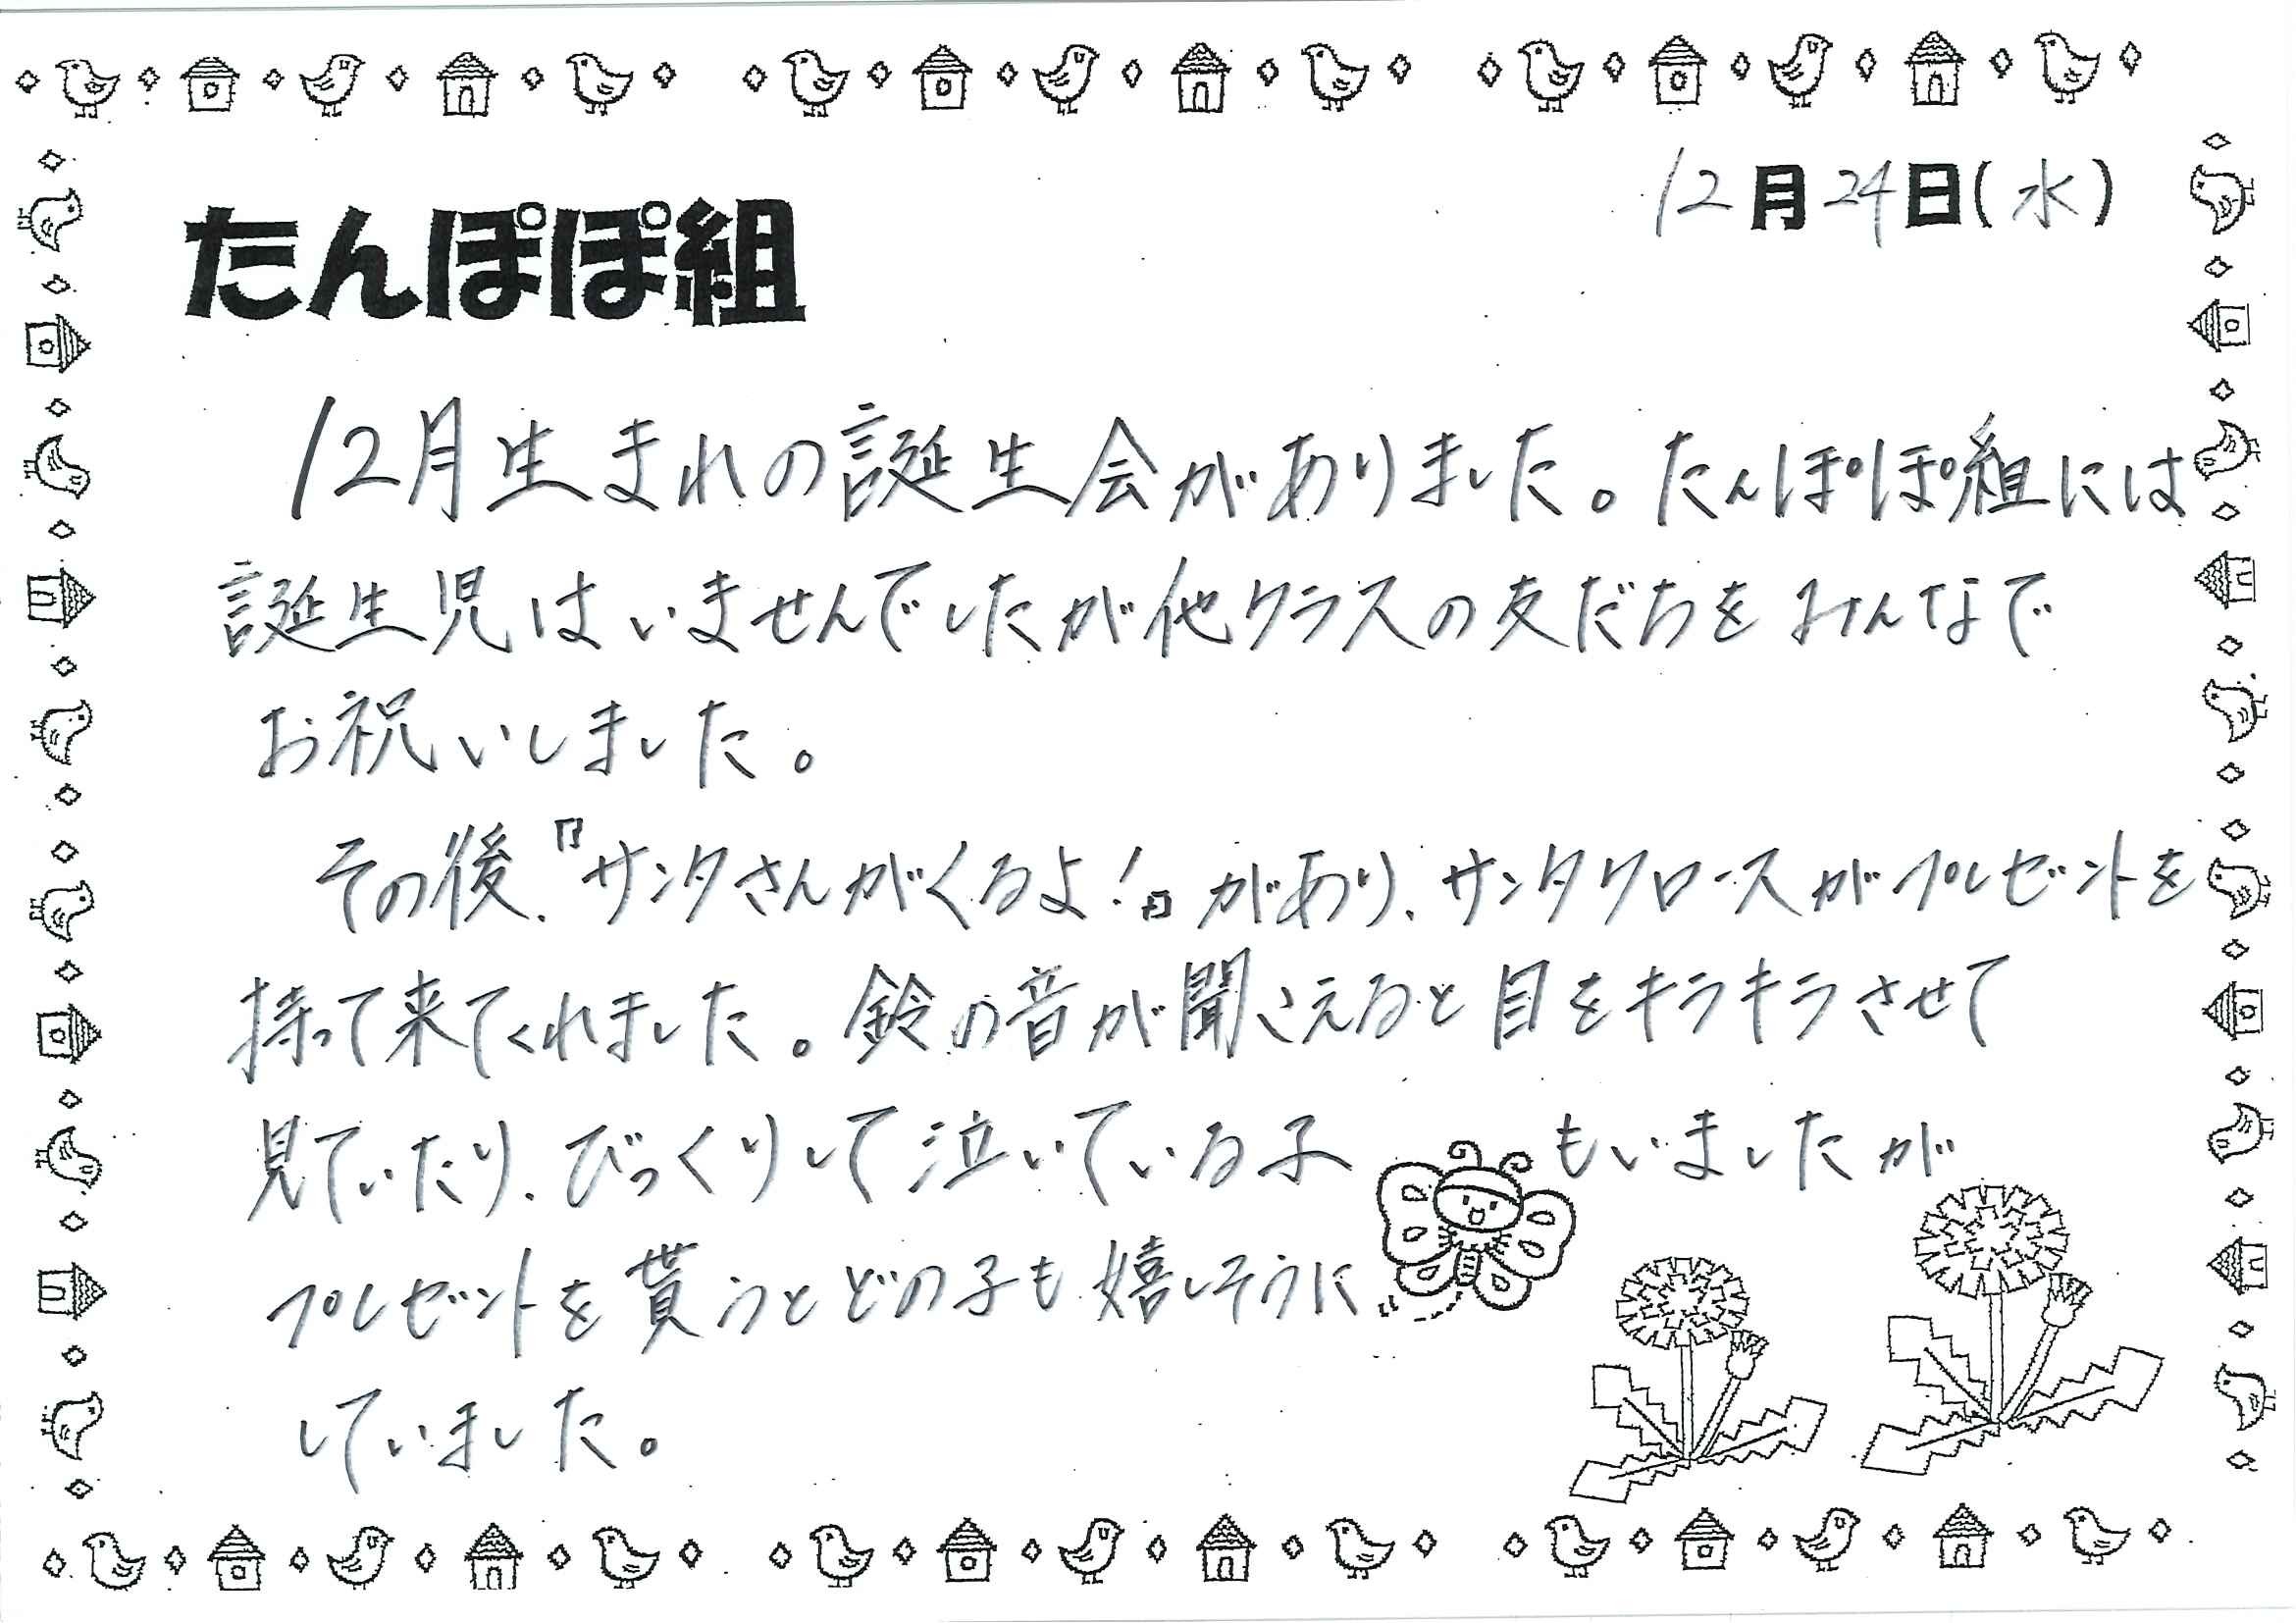 12月24日(水)
たんぽぽ組
12月生まれの誕生会がありました。たんぽぽ組には
誕生児はいませんでしたが他クラスの友だちをみんなで
お祝いしました。
その後、『サンタさんがくるよ!』があり、サンタクロースがプレゼントを
持って来てくれました。鈴の音が聞こえると目をキラキラさせて
見ていたり、びっくりして泣いている子もいましたが
プレゼントを貰うとどの子も嬉しそうに
していました。